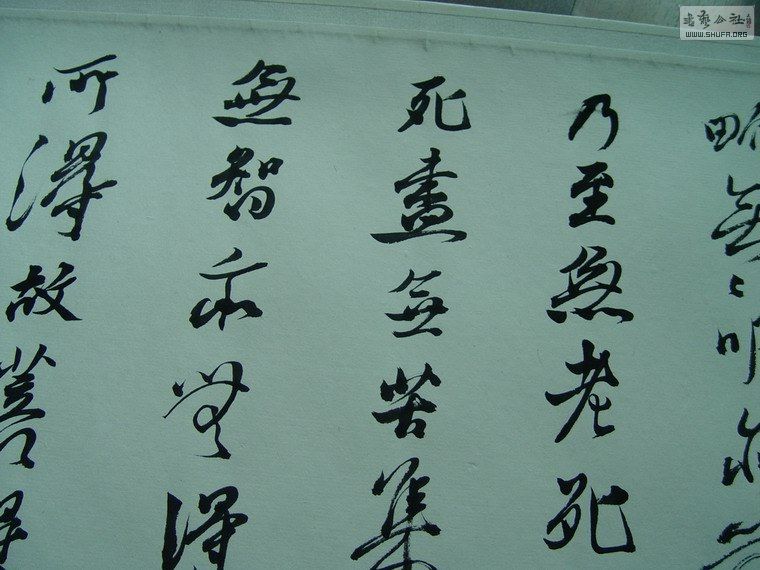 畍無〻明亦
乃至無老死
死盡無苦集
無智亦無得
所得故菩提
書藝公社
WWW.SHUFA.ORG